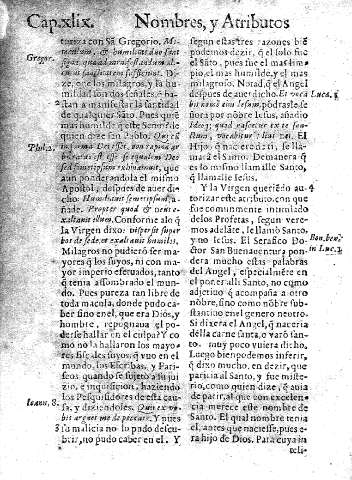 Cap.xlix. Nombres, y Atributos
Gregor.
Phili.2.
Ioann. 8.
turiza con Sã Gregorio,
ze, que los milagros, y la hu
mildad son dos señales, q̃ ba
stan a manifestar la santidad
de qualquier Sãto. Pues quẽ
mas humilde q̃ este Señor de
quien dize san Pablo. Qui cũ
in forma Dei esset, non rapinã ar
bitratus est esse se equalem Deo
sed semetipsum exinaniuit, que
aun ponderandola el mismo
Apostol, despues de auer di-
cho: Humiliauit semetipsum, a-
ñade. Propter quod & Deus ex-
altauit illum. Conforme a lo q̃
la Virgen dixo:
de sede, et exaltauit humiles.
Milagros no pudierõ ser ma
yores q̃ los suyos, ni con ma
yor imperio efetuados, tanto
q̃ tenia assombrado el mun
do. Pues pureza tan libre de
toda macula, donde pudo ca
ber sino en el, que era Dios, y
hombre, repugnaua el po-
derse hallar en el culpa? Y co
mo no la hallaron los mayo
res fiscales suyos, q̃ vuo en el
mundo, los Escribas, y Fari-
seos quando se sujeto a su jui
zio, e inquisicion, haziendo
los Pesquisidores de esta cau
sa, y diziendoles. Quis ex vo
bis arguet me de peccato. Y pues
su malicia no lo pudo descu-
brir, no pudo caber en el. Y
segun estas tres razones biẽ
podemos dezir, q̃ el solo fue
el Sãto, pues fue el mas lim-
pio, el mas humilde, y el mas
milagroso. Notad, q̃ el Angel
despues de auer dicho. Et voca
bis nomẽ eius Iesum, podrasle, se
ñora por nõbre Iesus, añadio
Ideoq; quod nascetur ex te san
ctum, vocabitur filius Dei. El
Hijo, q̃ nacerà de ti, se lla-
marà el Santo. Demanera q̃
es lo mismo llamalle Santo,
q̃ llamalle Iesus.
Y la Virgen queriẽdo au
torizar este atributo, con que
fue comunmente intimulado
delos Profetas, segun vere-
mos adelãte, le llamò Santo,
y no Iesus. El Serafico Do-
ctor San Buenauentura pon
dera mucho estas palabras
del Angel, especialmẽte en
el poner alli Santo, no como
adjetiuo q̃ acompaña a otro
nõbre, sino como nõbre subs
tantiuo en el genero neutro
Si dixera el Angel, q̃ naceria
della carne santa, o varõ san-
to. muy poco vuiera dicho.
Luego bien podemos inferir,
q̃ dixo mucho, en dezir, que
pariria al Santo, y fue miste-
rio, como quien dize, q̃ auia
de parir, al que con excelen-
cia merece este nombre de
Santo. El qual nombre tenia
el, antes que naciesse, pues e-
ra hijo de Dios. Para cuya in
teli-
Luca.
4
Bon. ben.
in Luc.